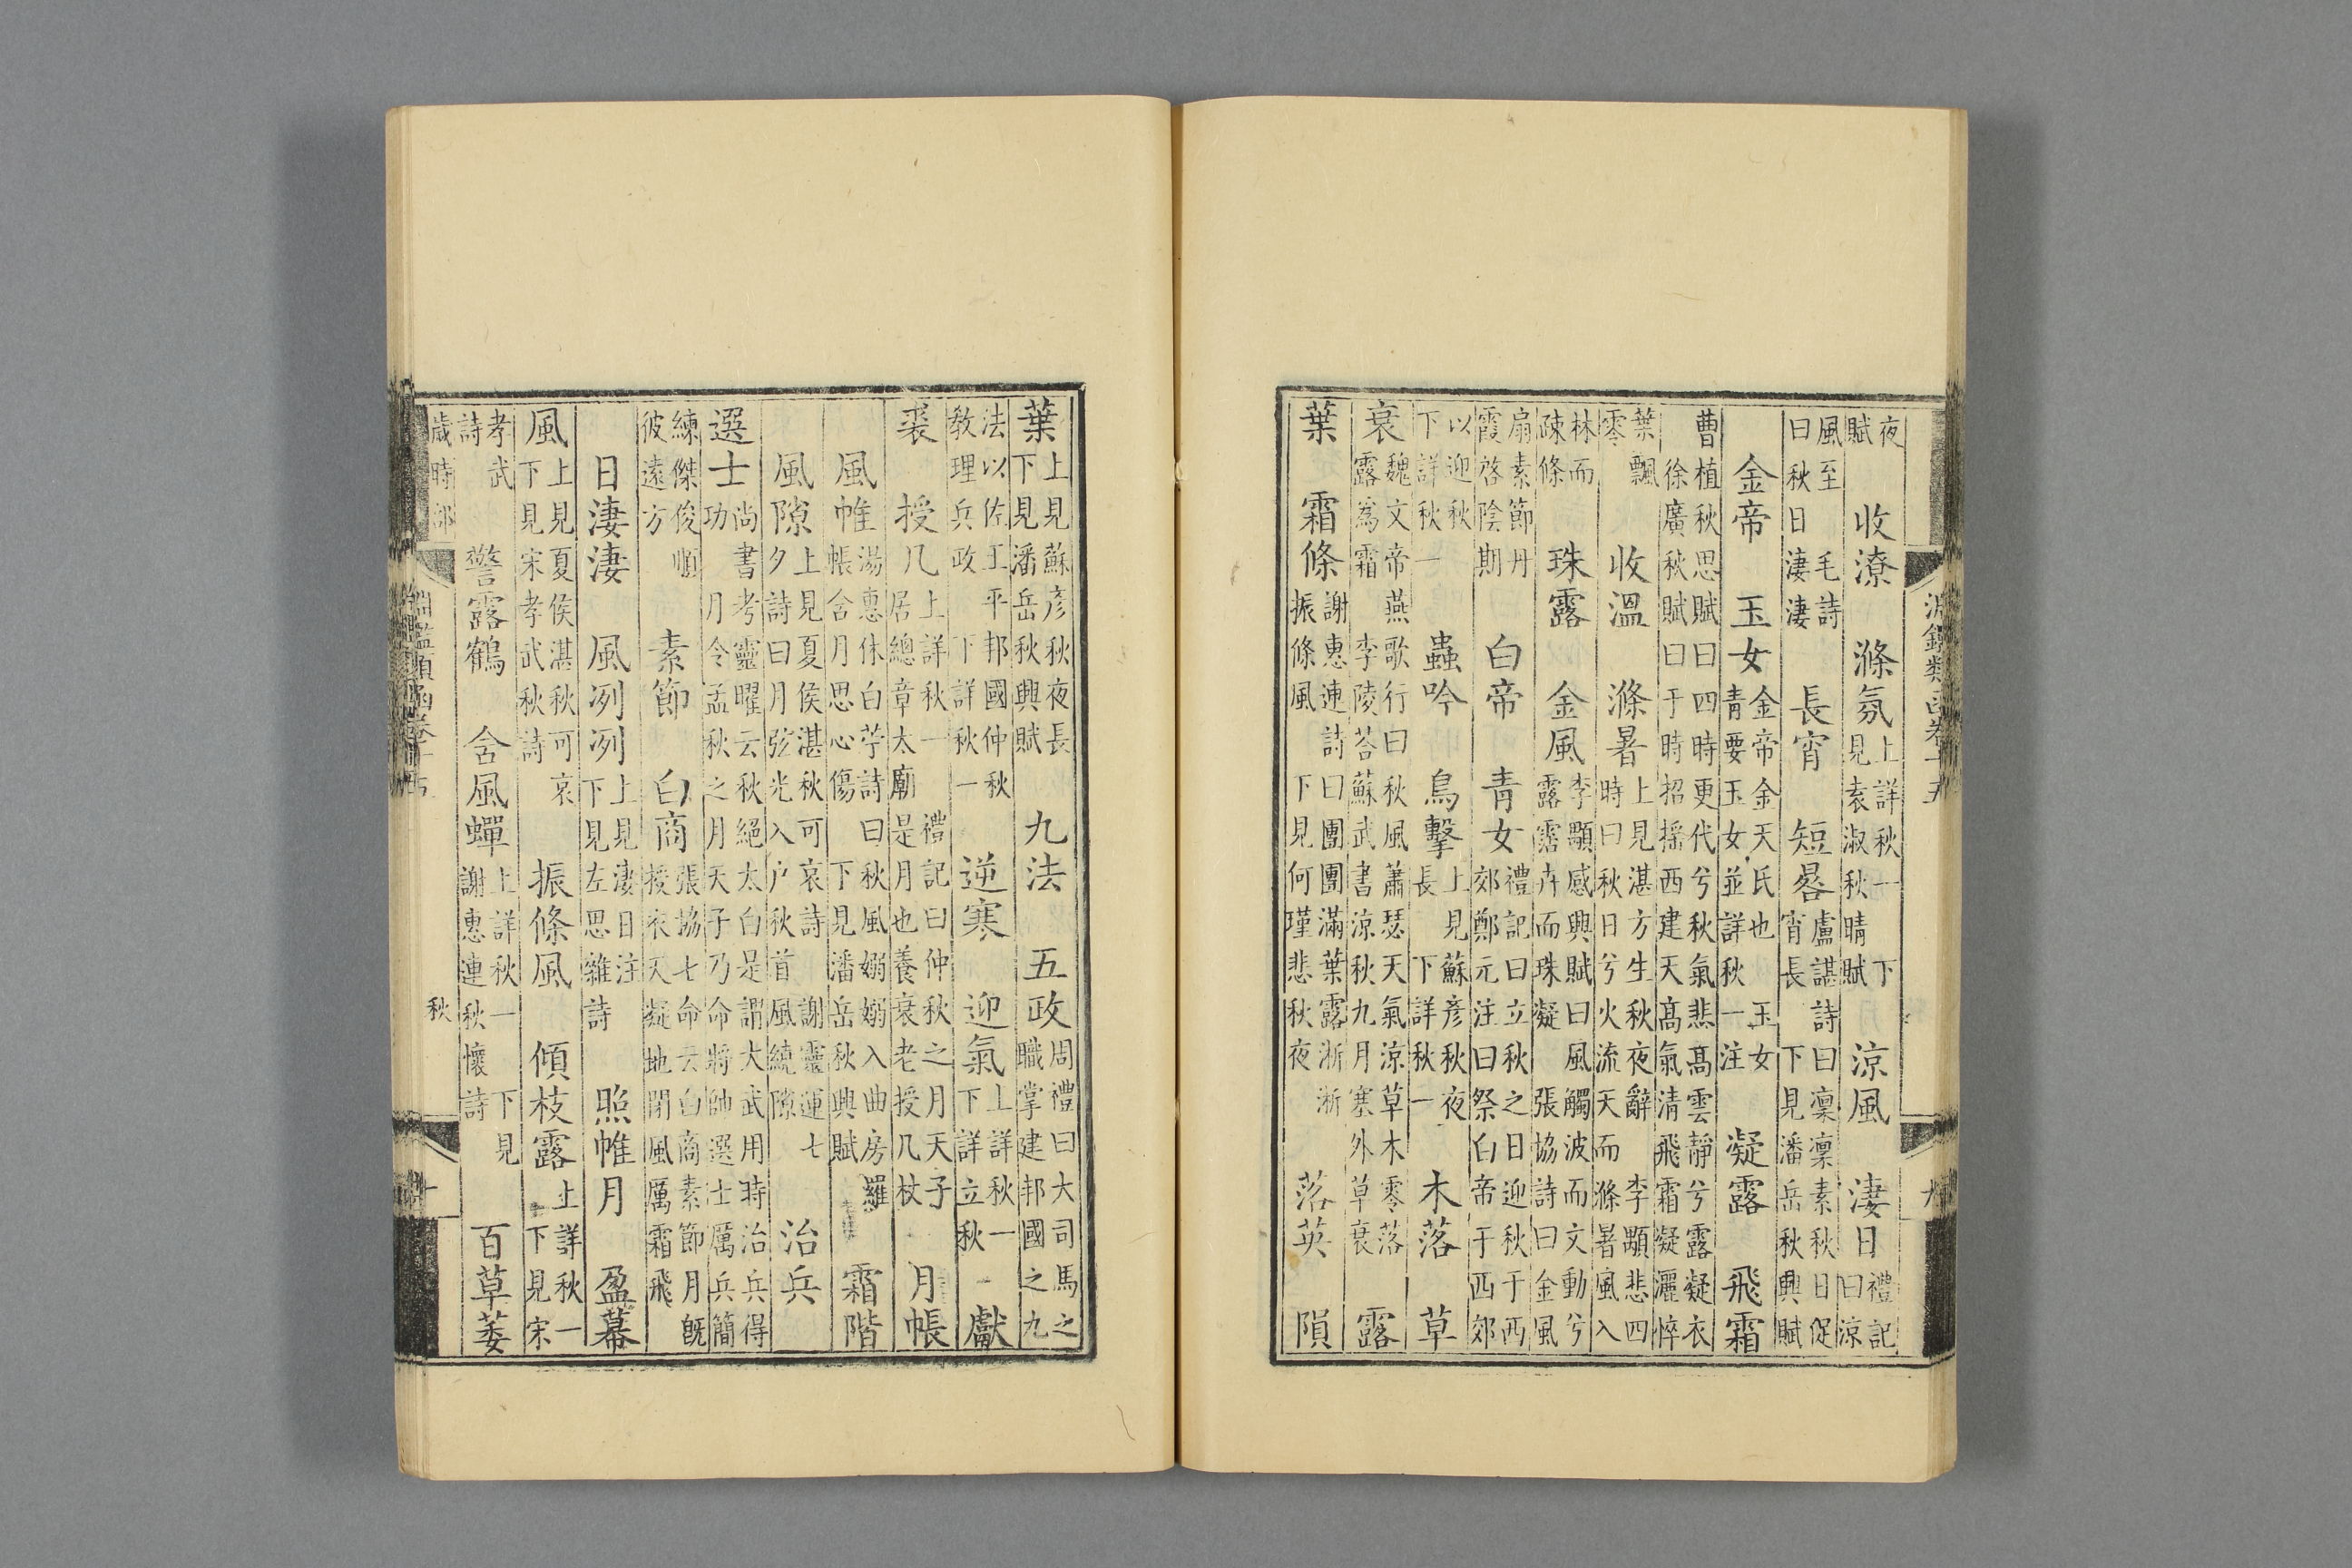 淵鑑類函卷十五
夜賦 收潦 滌氛 上詳秋一 下見袁淑秋晴賦 涼風 淒日 禮記曰涼
風至 毛詩曰秋日淒淒 長宵 短晷 盧諶詩曰凛凛素秋日促宵長 下見潘岳秋興賦
金帝 玉女 金帝金天氏也 玉女青要玉女並詳秋一注 凝露 飛霜
曹植秋思賦曰四時更代兮秋氣悲髙雲靜兮露凝衣 徐廣秋賦曰于時招揺西建天髙氣清飛霜凝灑悴
葉飄零 收溫 滌暑 上見湛方生秋夜辭 李顒悲四時曰秋日兮火流天而滌暑風入
林而疎條 珠露 金風 李顒感興賦曰風觸波而文動兮露霑卉而珠凝 張協詩曰金風
扇素節丹霞啓陰期 白帝 青女 禮記曰立秋之日迎秋于西郊鄭元注曰祭白帝于西郊
以迎秋 下詳秋一 蟲吟 鳥擊 上見蘇彦秋夜長 下詳秋一 木落 草
衰 魏文帝燕歌行曰秋風蕭瑟天氣涼草木零落露為霜 李陵荅蘇武書涼秋九月塞外草衰 露
葉 霜條 謝惠連詩曰團團滿葉露淅淅振條風 下見何瑾悲秋夜 落英 隕
葉 上見蘇彦秋夜長 下見潘岳秋興賦 九法 五政 周禮曰大司馬之職掌建邦國之九
法以佐王平邦國仲秋教理兵政 下詳秋一 逆寒 迎氣 上詳秋一 下詳立秋 獻
裘 授几 上詳秋一 禮記曰仲秋之月天子居總章太廟是月也養衰老授几杖 月帳
風帷 湯惠休白苧詩曰秋風嫋嫋入曲房羅帳含月思心傷 下見潘岳秋興賦 霜階
風隙 上見夏侯湛秋可哀詩 謝靈運七夕詩曰月弦光入户秋首風繞隙 治兵
選士 尚書考靈曜云秋絕太白是謂大武用時治兵得功 月令孟秋之月天子乃命將帥選士厲兵簡
練傑俊順彼遠方 素節 白商 張協七命云白商素節月旣授衣天凝地閉風厲霜飛
日淒淒 風冽冽 上見淒日注 下見左思雜詩 照帷月 盈幕
風 上見夏侯湛秋可哀 下見宋孝武秋詩 振條風 傾枝露 上詳秋一 下見宋
孝武詩 警露鶴 含風蟬 上詳秋一 下見謝惠連秋懷詩 百草萎
歲時部 秋
淵鑑類函卷十五 十